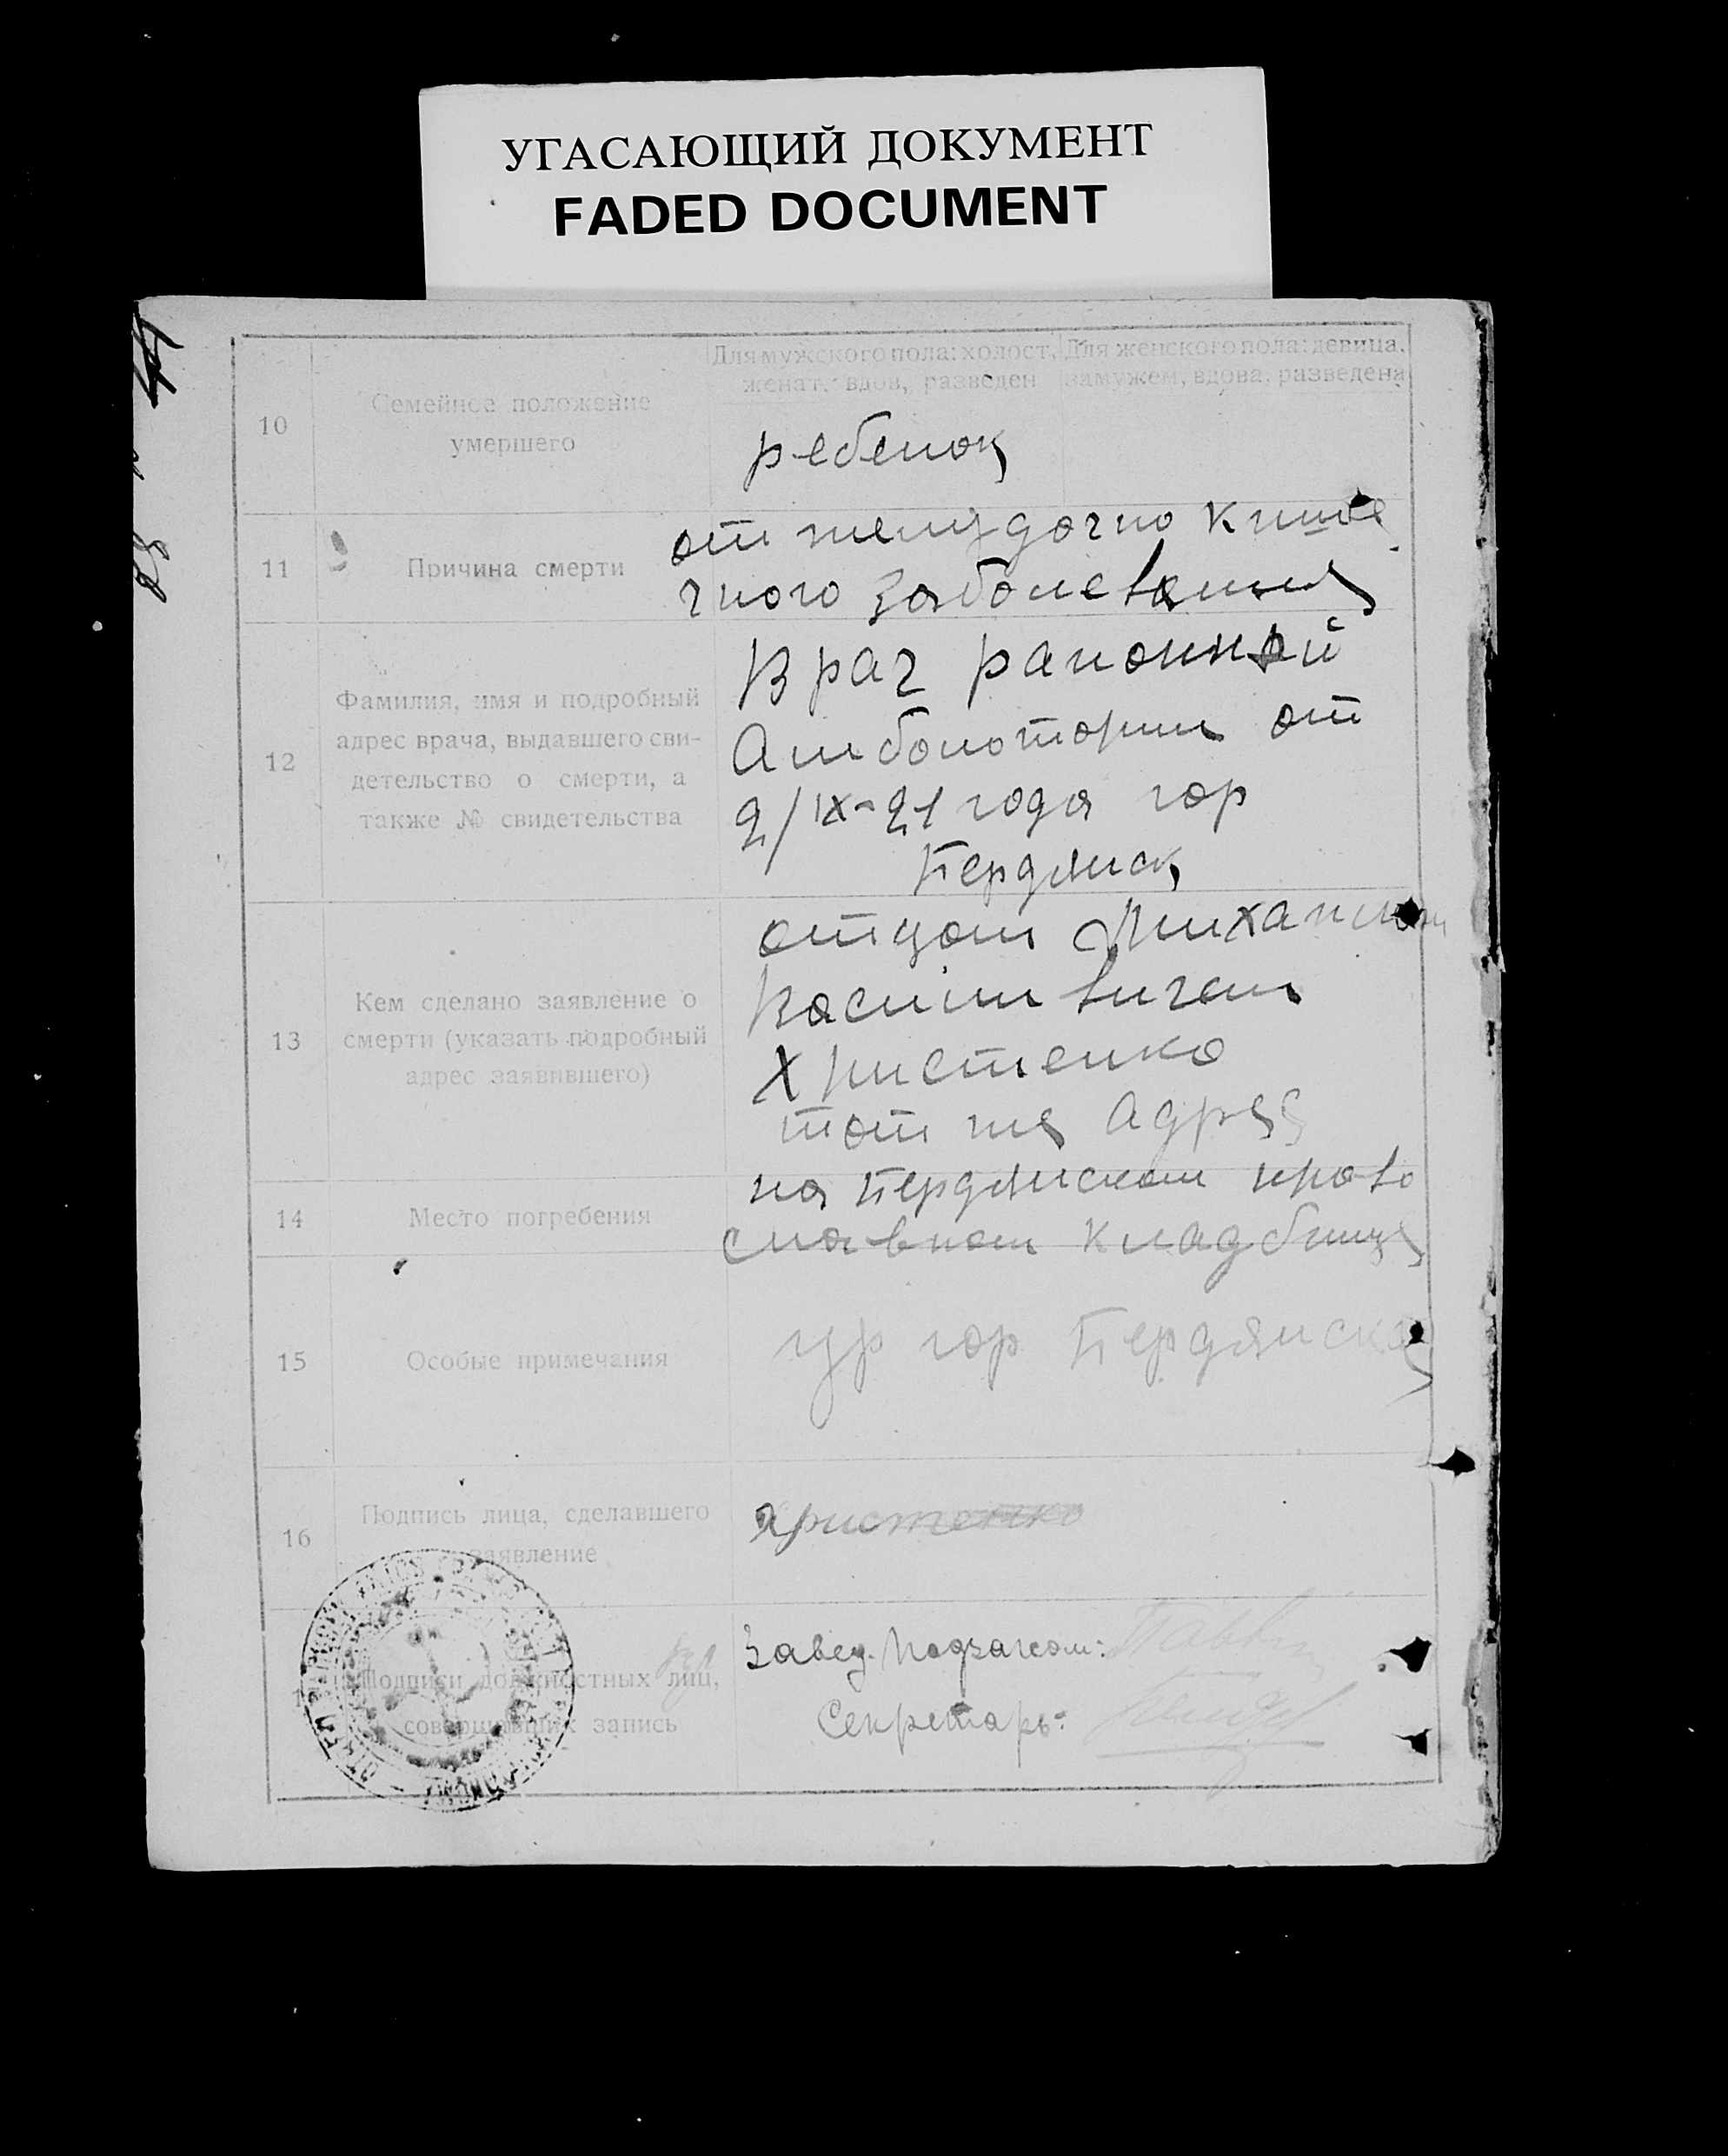 УГАСАЮЩИЙ ДОКУМЕНТ
FADED DOCUMENT
Для мужского пола: холост,
женат, вдов, разведен
Для женского пола: девица,
замужем, вдова, разведена
10
Семейное положение
умершего
ребенок
11
Причина смерти
от желудочно кише
чного заболевания
12
Фамилия, имя и подробный
адрес врача, выдавшего сви-
детельство о смерти, а
также № свидетельства
Врач районной
Амболотории от
2/IX-21 года гор
Бердянск
13
Кем сделано заявление о
смерти (указать подробный
адрес заявившего)
отцом Михаилом
Христенко
тот же адрес
14
Место погребения
на Бердянском право
славном кладбище
15
Особые примечания
гр гор Бердянска
16
Подпись лица, сделавшего
заявление
Христенко
Подписи должностных лиц,
совершивших запись
Завед. Подзагсом:
Секретарь: